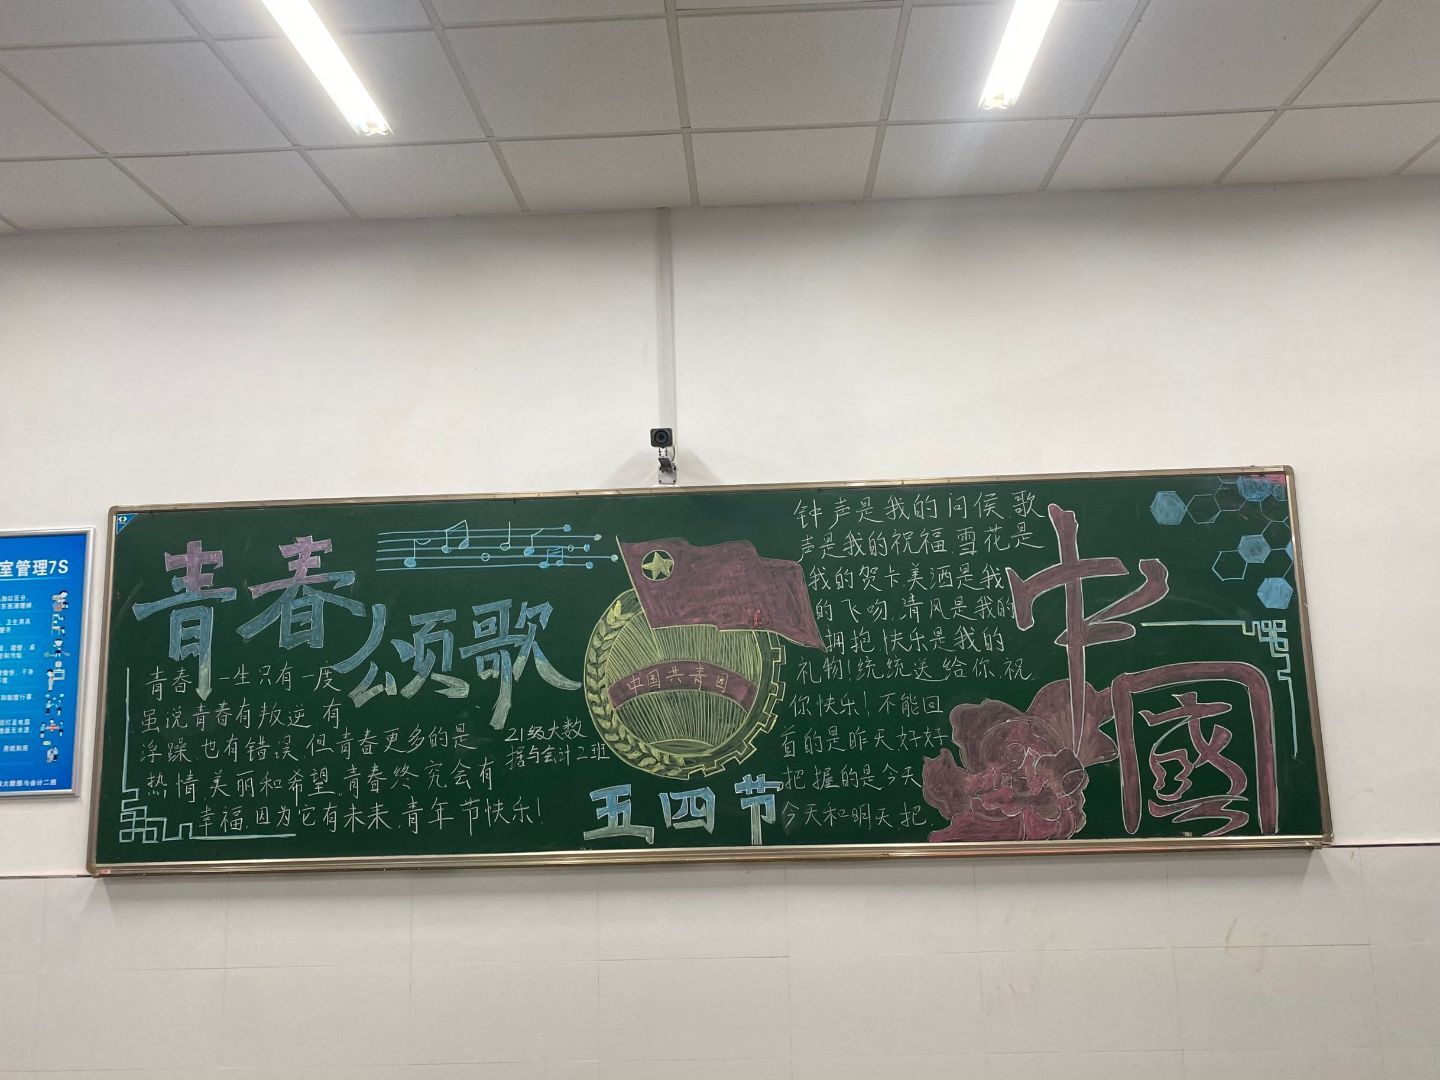 室管理7S
青春颂歌
青春,一生只有一度
虽说青春有叛逆,有
浮躁,也有错误,但青春更多的是
热情美丽和希望,青春终究会有
幸福,因为它有未来,青年节快乐!
21级大数
据与会计2班
中国共青团
五四节
钟声是我的问侯,歌
声是我的祝福,雪花是
我的贺卡,美酒是我
的飞吻,清风是我的
拥抱,快乐是我的
礼物!统统送给你,祝
你快乐!不能回
首的是昨天,好好
把握的是今天
今天和明天,把
中国